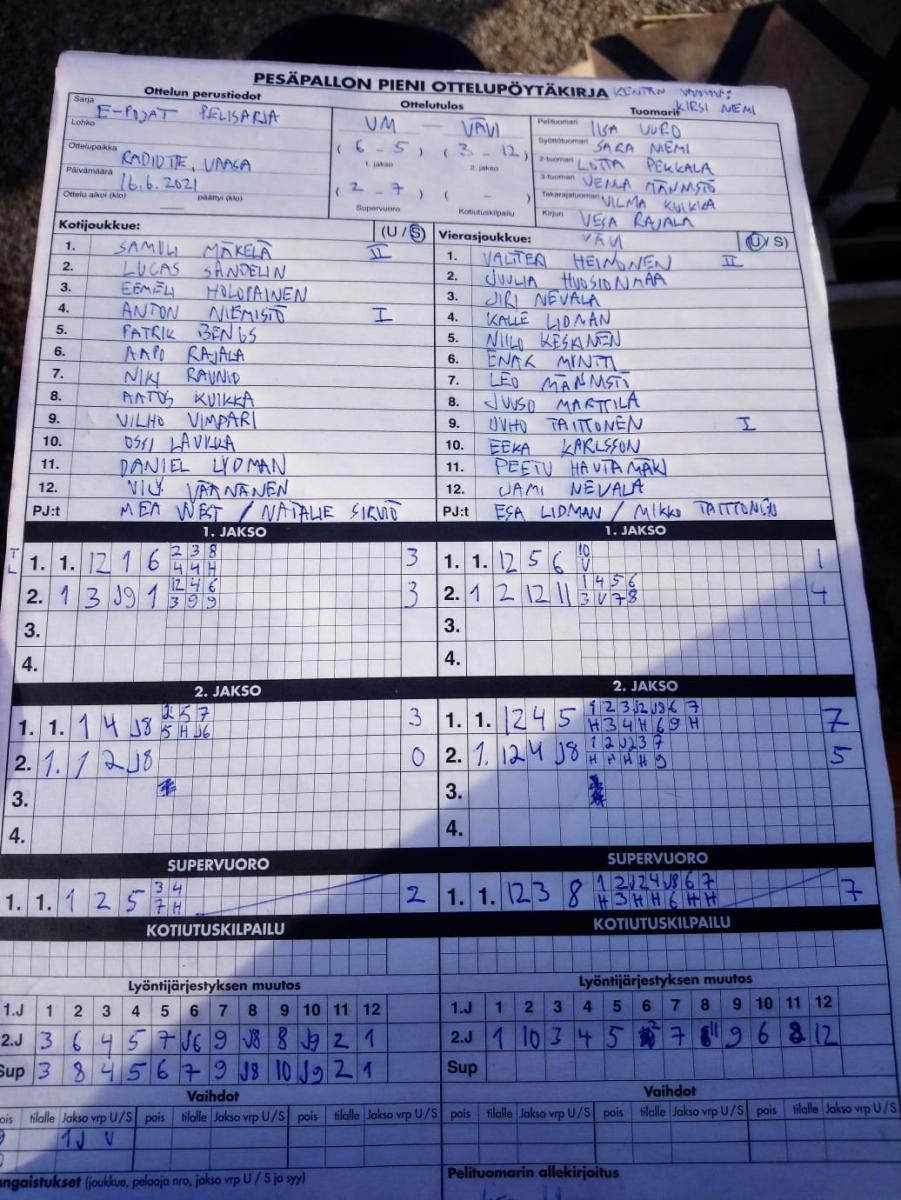 PESÄPALLON PIENI OTTELUPÖYTÄKIRJA KENTÄN
Ottelun perustiedot Ottelutulos Tuomarit KIRSI NIEMI
Sarja E-POJAT PELISARJA UM - VÄVI Pelituomari
Lohko (6 - 5) (3 - 12) Syöttötuomari SARA NIEMI
1. jakso 2. jakso
Ottelupaikka VAASA 2-tuomari LOTTA PEKKALA
Päivämäärä 16.6.2021 (2 - 7) ( - ) 3-tuomari VENLA
Ottelu alkoi (klo) — päättyi (klo) Supervuoro Kotiutuskilpailu Takarajatuomari VILMA KUIKKA
Kirjuri VESA RAJALA
Kotijoukkue: (U / S) Vierasjoukkue: VÄVI (U / S)
1. SAMULI MÄKELÄ II 1. VALTTERI HEIMONEN II
2. LUCAS SANDELIN 2. JUULIA
3. EEMELI HOLOPAINEN 3. JIRI NEVALA
4. ANTON NIEMISTÖ I 4. KALLE LIDMAN
5. PATRIK BENGS 5. NIILO KESKINEN
6. AAPO RAJALA 6.
7. NIKI RAUNIO 7. LEO
8. AATOS KUIKKA 8. JUUSO MARTTILA
9. VILHO VIMPARI 9. TAITTONEN I
10. OSSI LAUKKA 10. EEKA KARLSSON
11. DANIEL LYDMAN 11. PEETU HAUTAMÄKI
12. VÄÄNÄNEN 12. JAMI NEVALA
PJ:t MEA WEST / NATALIE SIRVIÖ PJ:t ESA LIDMAN / MIKKO TAITTONEN
1. JAKSO 1. JAKSO
TL 1. 1. 12 1 6 2 3 8 3 1. 1. 12 5 6 10 1
4 4 H V
2. 1 3 J9 1 12 4 6 3 2. 1 2 12 11 1 4 5 6 4
3 9 9 3 V 7 8
3. 3.
4. 4.
2. JAKSO 2. JAKSO
1. 1. 1 4 J8 2 5 7 3 1. 1. 12 4 5 1 2 3 J2 J8 6 7 7
5 H J6 H 3 4 H 6 9 H
2. 1. 1 2 J8 0 2. 1. 12 4 J8 1 2 J2 3 7 5
H H H H 9
3. 3.
4. 4.
SUPERVUORO SUPERVUORO
1. 1. 1 2 5 3 4 2 1. 1. 12 3 8 1 2 J2 4 J8 6 7 7
7 H H 3 H H 6 H H
KOTIUTUSKILPAILU KOTIUTUSKILPAILU
Lyöntijärjestyksen muutos Lyöntijärjestyksen muutos
1.J 1 2 3 4 5 6 7 8 9 10 11 12 1.J 1 2 3 4 5 6 7 8 9 10 11 12
2.J 3 6 4 5 7 J6 9 J8 8 J9 2 1 2.J 1 10 3 4 5 7 9 6 12
Sup 3 8 4 5 6 7 9 J8 10 J9 2 1 Sup
Vaihdot Vaihdot
pois tilalle Jakso vrp U/S pois tilalle Jakso vrp U/S pois tilalle Jakso vrp U/S pois tilalle Jakso vrp U/S pois tilalle Jakso vrp U/S pois tilalle Jakso vrp U/S
1J V
ngaistukset (joukkue, pelaaja nro, jakso vrp U / S ja syy) Pelituomarin allekirjoitus